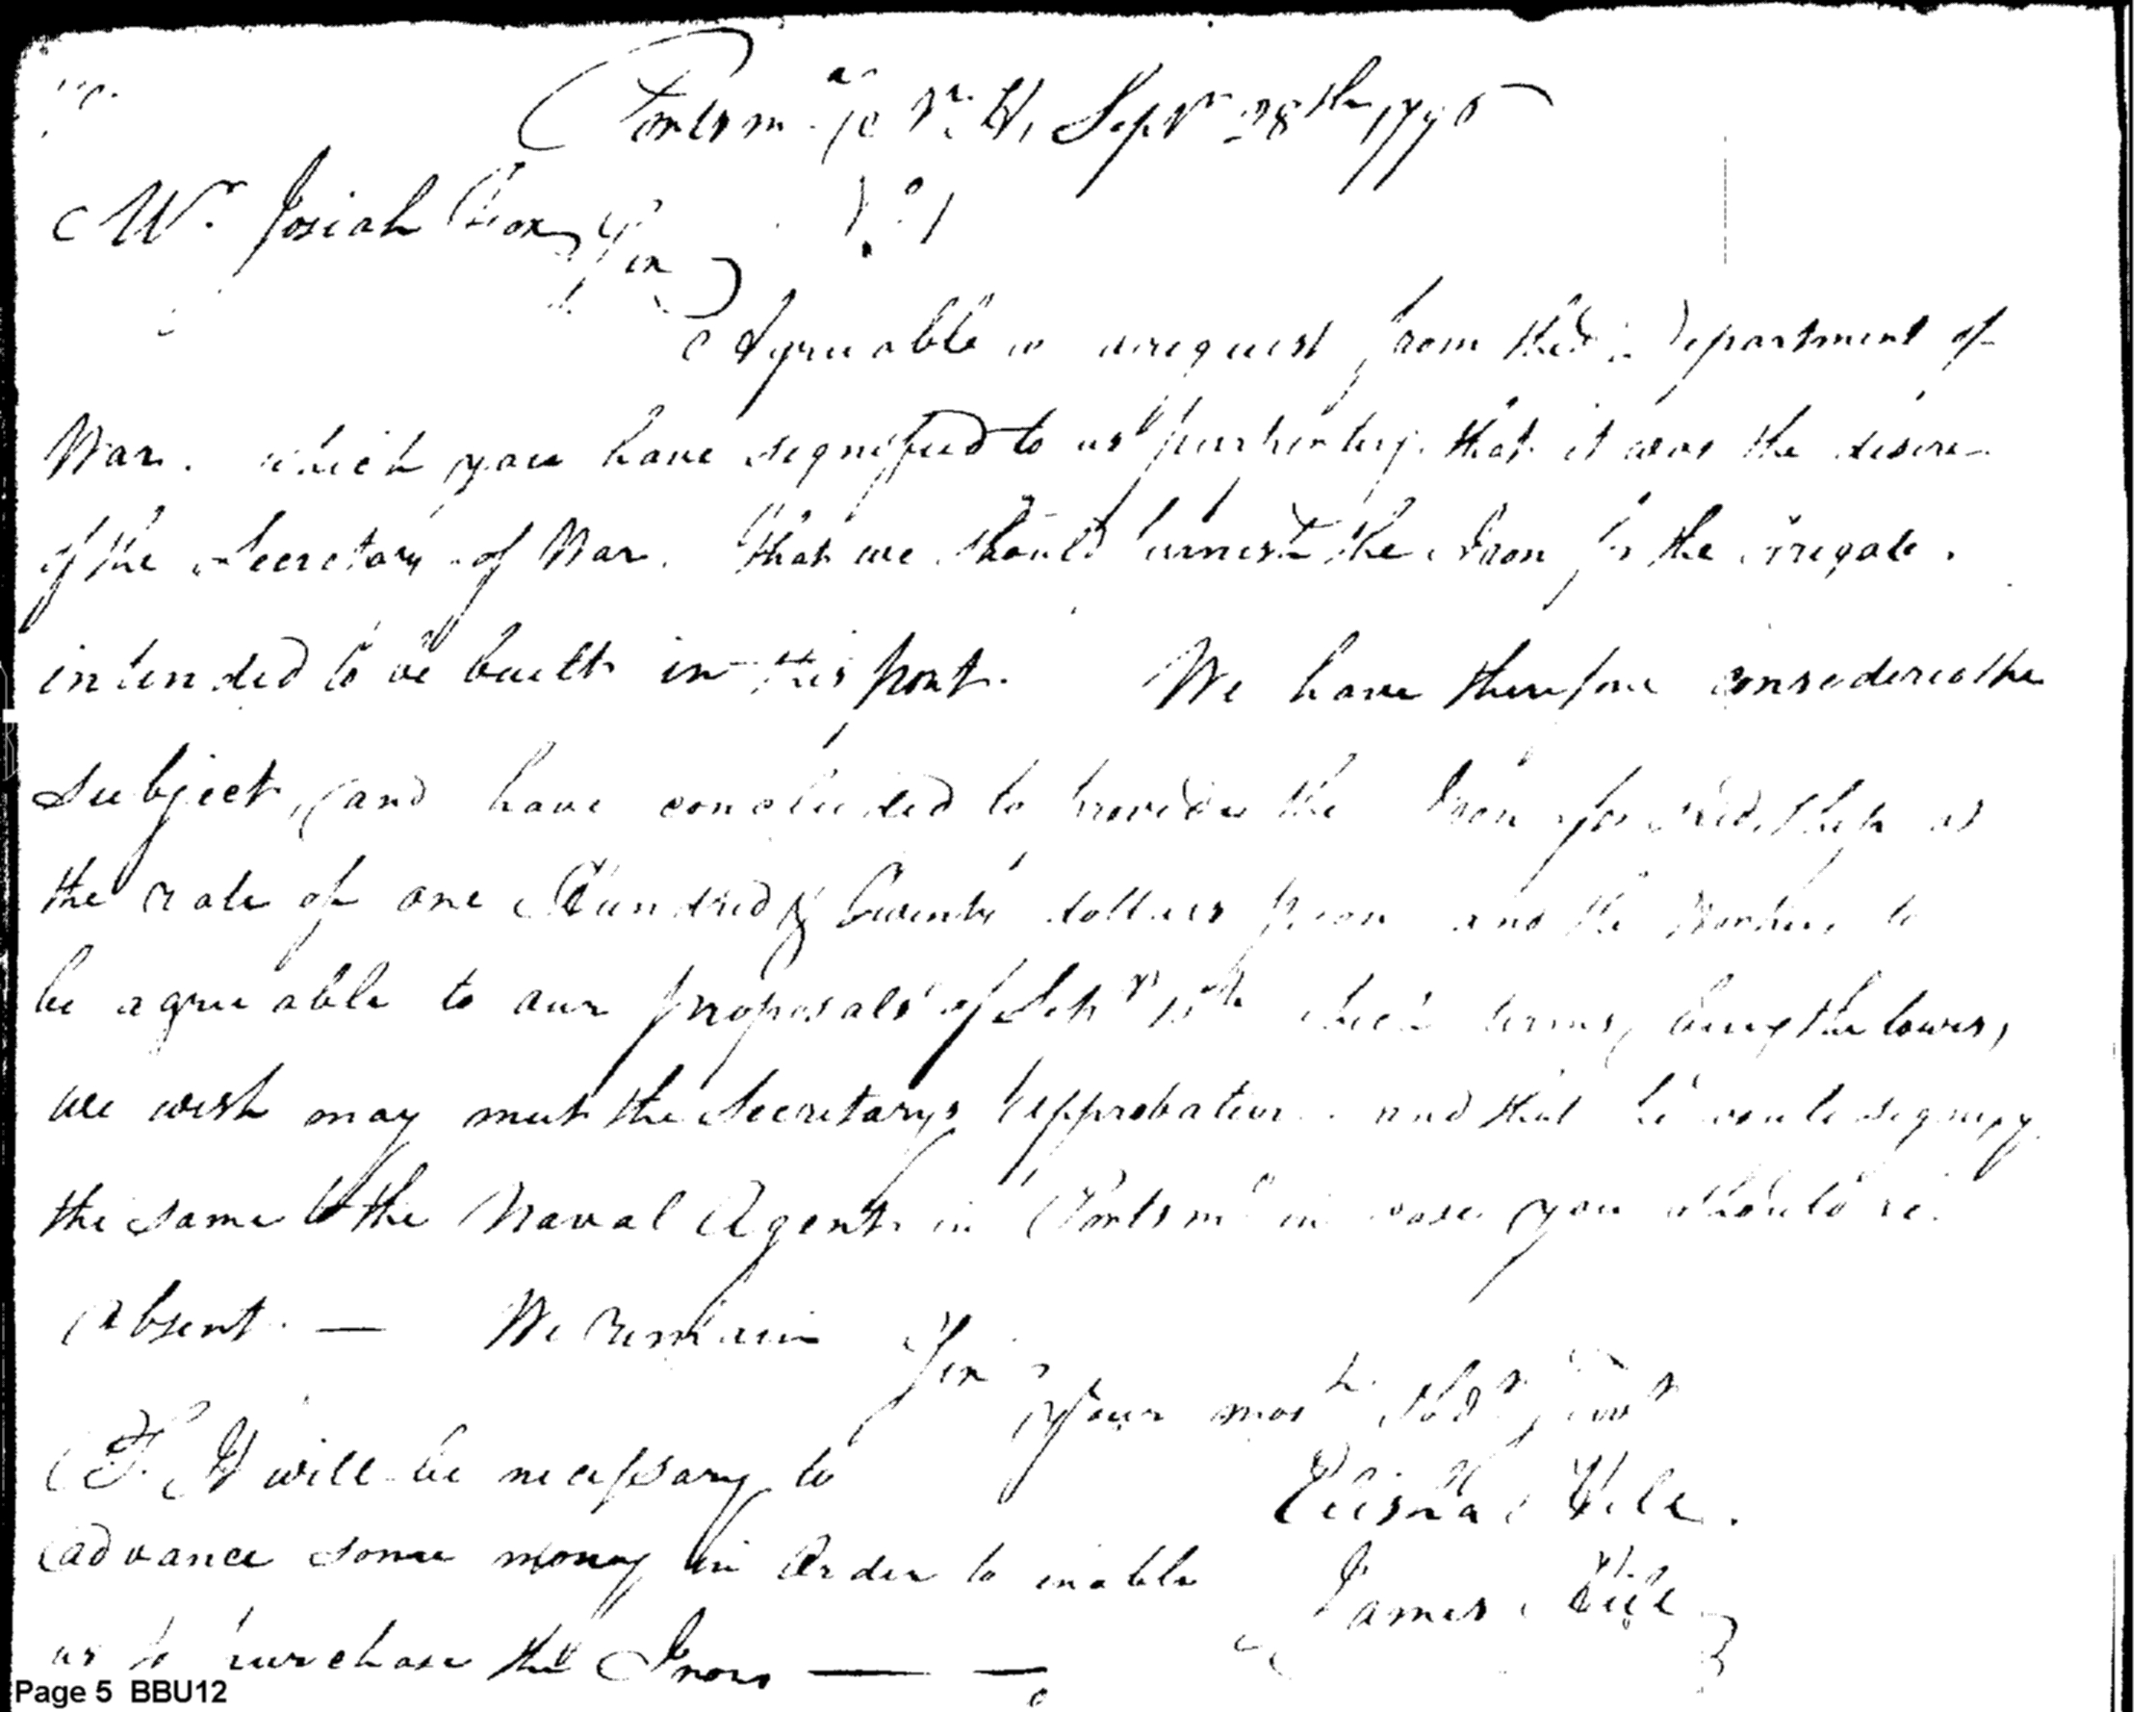 Portsmo N. H. Septr 28th 1795
Mr. Josiah Fox Sir
Agreeable to a request from the Department of
War. which you have signified to us purporting that it was the desire
of the Secretary of War. that we should furnish the Iron for the Frigate.
intended to be built in this port. We have therefore considered the
subject, and have concluded to provide the Iron for said Ship at
the rate of one Hundred & Twenty dollars pr ton and the working to
be agreeable to our proposals of Sepr 15th which terms, being the lowest,
we wish may meet the Secretarys Approbation and that he would signify
the same to the Naval Agent in Portsmo in case you should be
absent. — We remain Sir
your most Obdt Servt
Elisha Hill.
James Hill
It will be necessary to
advance some money in order to inable
us to purchase the Iron — —
Page 5 BBU12